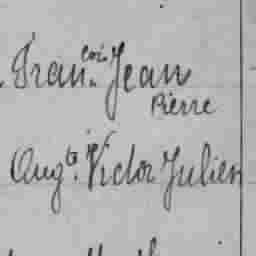 Fran.çois Jean
Pierre
Aug.te Victor Julien